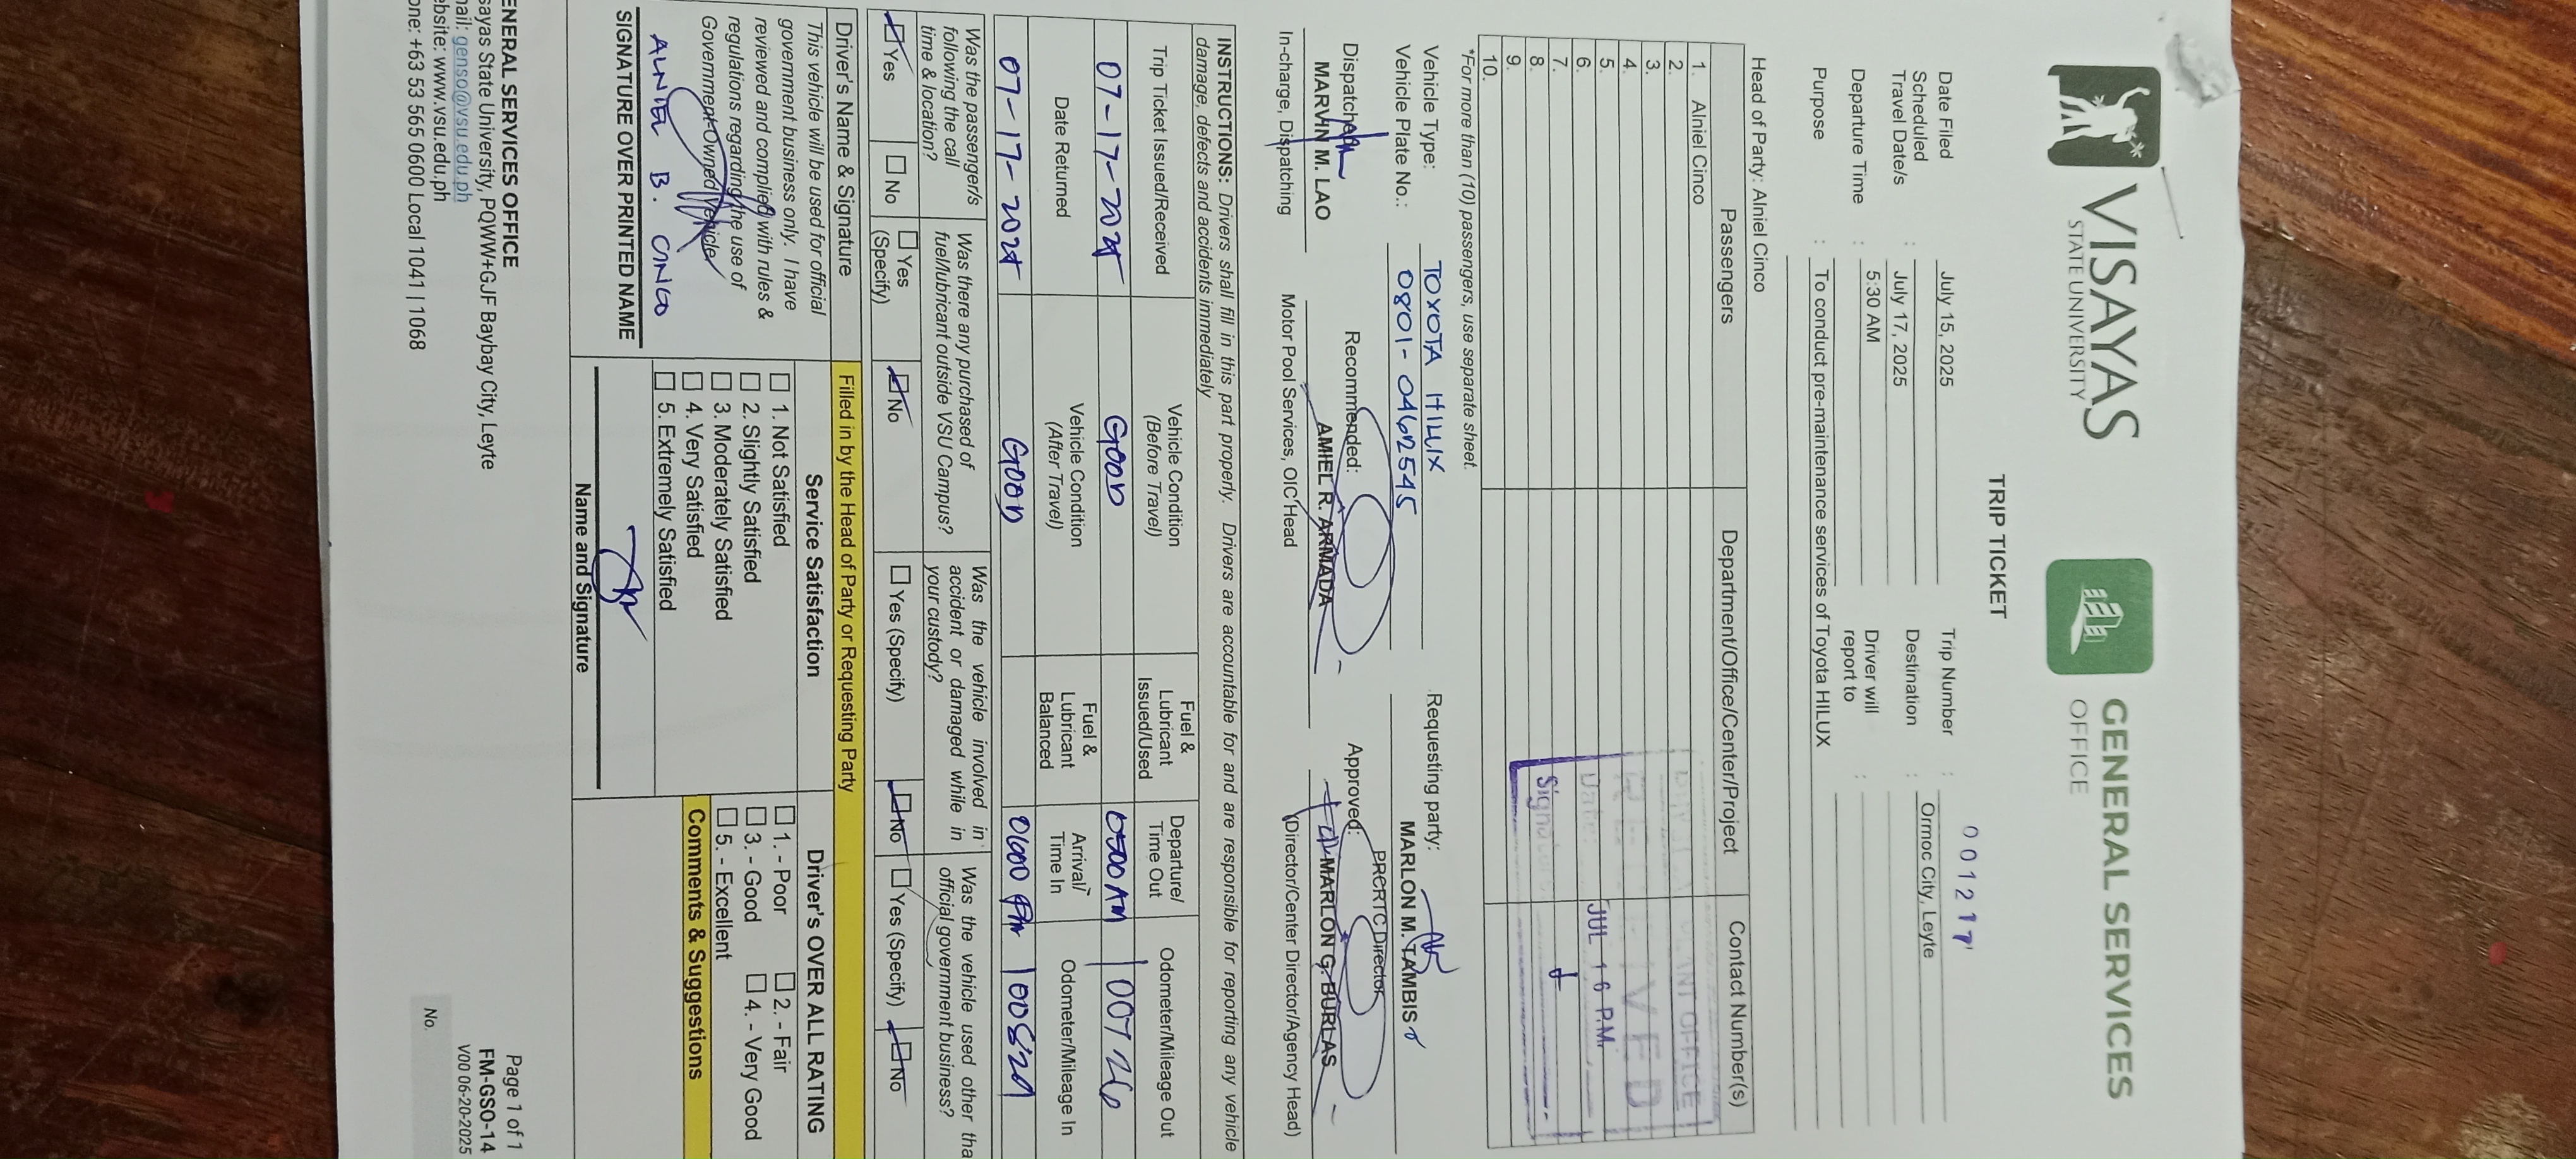 VISAYAS
STATE UNIVERSITY
GENERAL SERVICES
OFFICE
TRIP TICKET
001217
Date Filed : July 15, 2025
Trip Number :
Scheduled
Travel Date/s : July 17, 2025
Destination : Ormoc City, Leyte
Departure Time : 5:30 AM
Driver will
report to :
Purpose : To conduct pre-maintenance services of Toyota HILUX
Head of Party: Alniel Cinco
Passengers Department/Office/Center/Project Contact Number(s)
1. Alniel Cinco
2.
3.
4.
5.
6.
7.
8.
9.
10.
JUL 16 P.M.
*For more than (10) passengers, use separate sheet.
Vehicle Type: TOYOTA HILUX
Requesting party:
Vehicle Plate No.: 0801-0462545
MARLON M. TAMBIS
PRCRTC Director
Recommended:
Approved:
MARVIN M. LAO
AMIEL R. ARMADA
MARLON G. BURLAS
In-charge, Dispatching
Motor Pool Services, OIC Head
(Director/Center Director/Agency Head)
INSTRUCTIONS: Drivers shall fill in this part properly. Drivers are accountable for and are responsible for reporting any vehicle
damage, defects and accidents immediately
Trip Ticket Issued/Received
Vehicle Condition
(Before Travel)
Fuel &
Lubricant
Issued/Used
Departure/
Time Out
Odometer/Mileage Out
07-17-2025 GOOD 0500 AM 100726
Date Returned
Vehicle Condition
(After Travel)
Fuel &
Lubricant
Balanced
Arrival/
Time In
Odometer/Mileage In
07-17-2025 GOOD 0600 PM
Was the passenger/s
following the call
time & location?
Was there any purchased of
fuel/lubricant outside VSU Campus?
Was the vehicle involved in
accident or damaged while in
your custody?
Was the vehicle used other tha
official government business?
Yes
No
Yes
(Specify)
No
Yes (Specify)
No
Yes (Specify)
No
Driver's Name & Signature
This vehicle will be used for official
government business only. I have
reviewed and complied with rules &
regulations regarding the use of
Government-Owned Vehicle.
ALNIEL B. CINCO
SIGNATURE OVER PRINTED NAME
Filled in by the Head of Party or Requesting Party
Service Satisfaction
1. Not Satisfied
2. Slightly Satisfied
3. Moderately Satisfied
4. Very Satisfied
5. Extremely Satisfied
Name and Signature
Driver's OVER ALL RATING
1. - Poor 2. - Fair
3. - Good 4. - Very Good
5. - Excellent
Comments & Suggestions
ENERAL SERVICES OFFICE
sayas State University, PQWW+GJF Baybay City, Leyte
nail: genso@vsu.edu.ph
ebsite: www.vsu.edu.ph
one: +63 53 565 0600 Local 1041 | 1068
Page 1 of 1
FM-GSO-14
V00 06-20-2025
No.